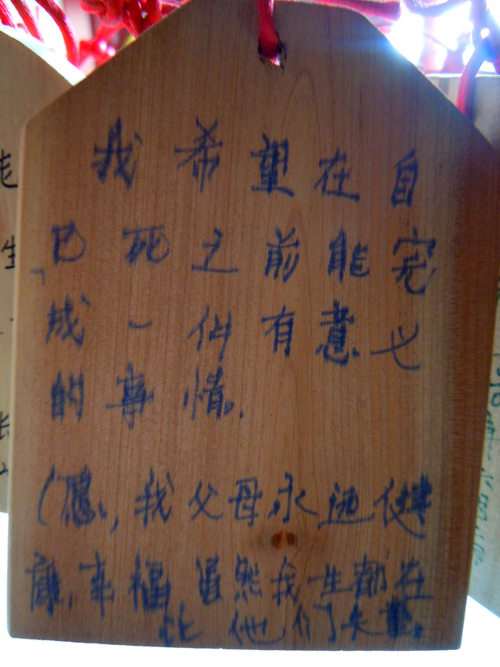 我希望在自
己死之前能完
成一件有意义
的事情。
我父母永远健
康,幸福 虽然我一生都在
让他们失望。